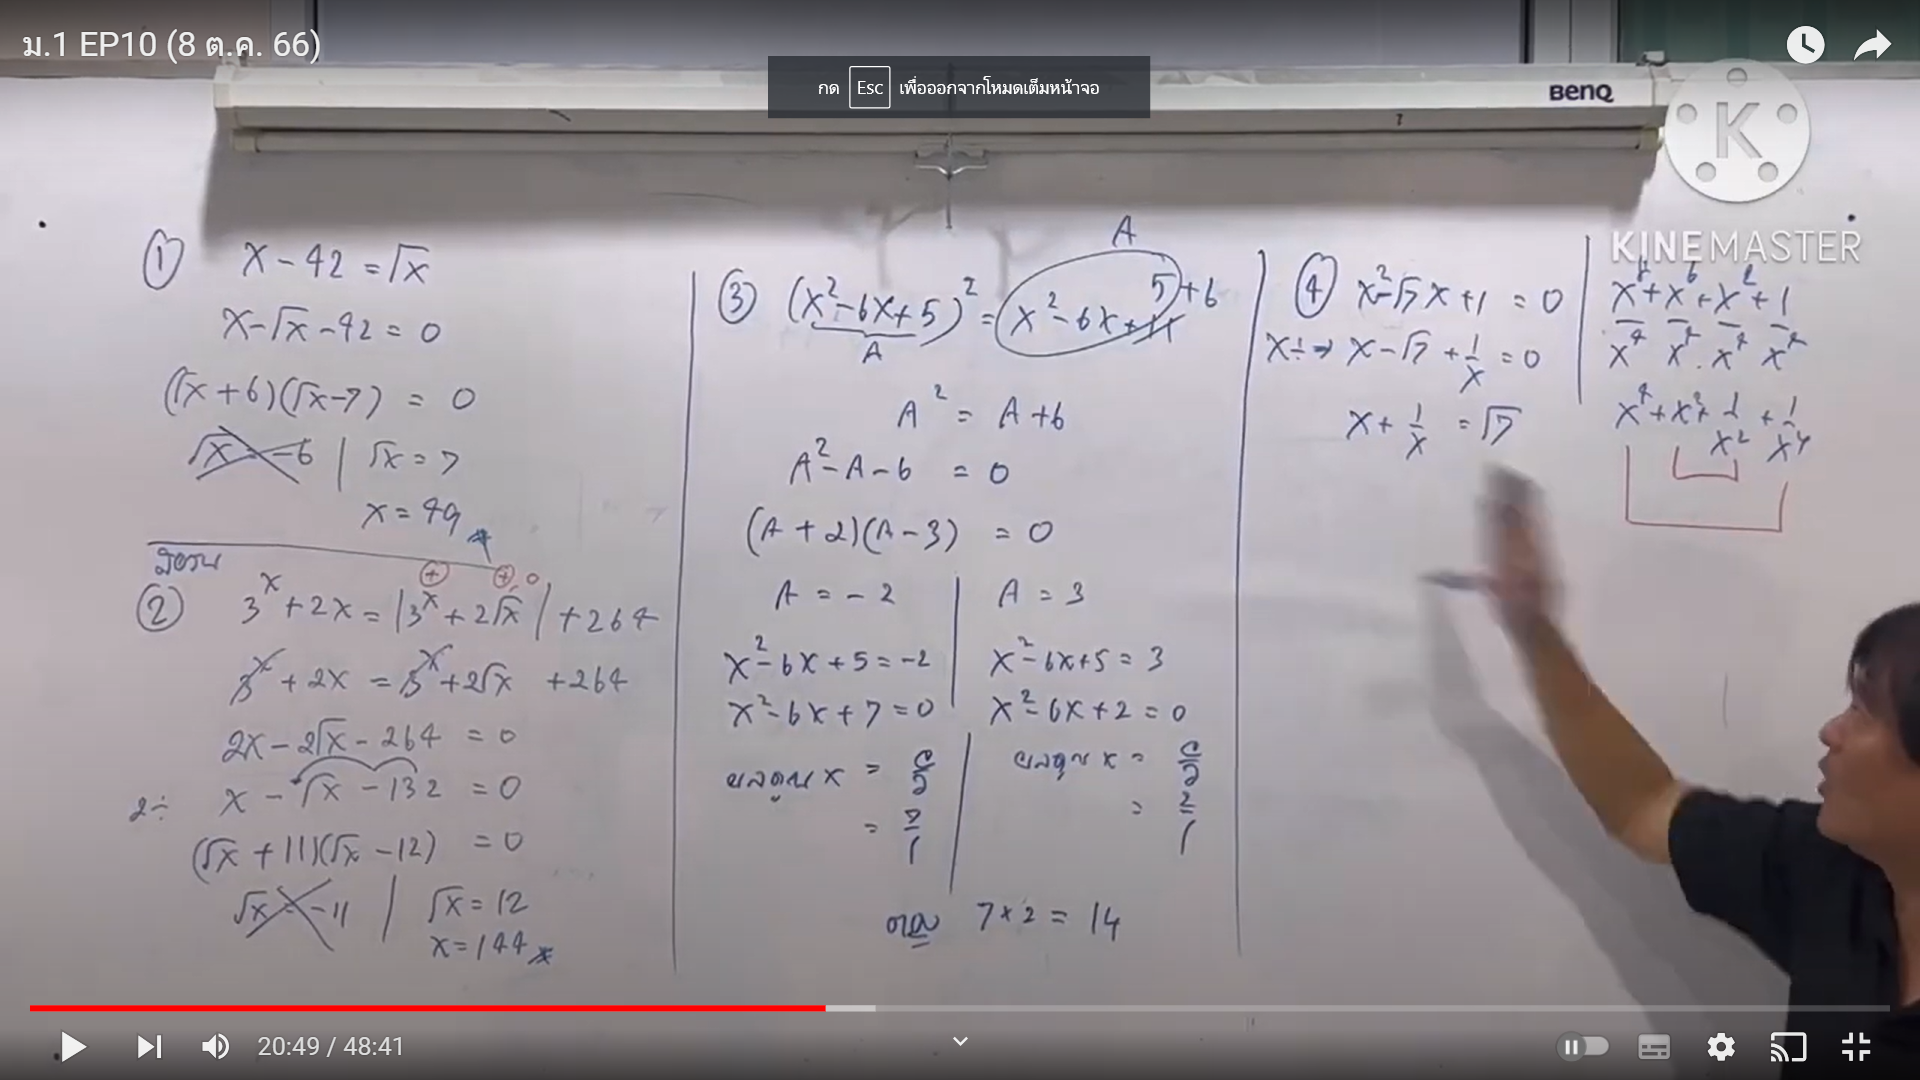 ม.1 EP10 (8 ต.ค. 66)
กด Esc เพื่อออกจากโหมดเต็มหน้าจอ
BenQ
K
KINEMASTER
① x - 42 = √x
x - √x - 42 = 0
(√x + 6)(√x - 7) = 0
√x = -6 | √x = 7
x = 49
② 3^x + 2x = |3^x + 2√x| + 264
⊕ ⊕,0
3^x + 2x = 3^x + 2√x + 264
2x - 2√x - 264 = 0
2÷ x - √x - 132 = 0
(√x + 11)(√x - 12) = 0
√x = -11 | √x = 12
x = 144
③ (x² - 6x + 5)² = x² - 6x + 11 5 + 6
A
A
A² = A + 6
A² - A - 6 = 0
(A + 2)(A - 3) = 0
A = -2 | A = 3
x² - 6x + 5 = -2 | x² - 6x + 5 = 3
x² - 6x + 7 = 0 | x² - 6x + 2 = 0
ผลคูณ x = c/a | ผลคูณ x = c/a
= 7/1 | = 2/1
ตอบ 7 × 2 = 14
④ x² - √7x + 1 = 0
x÷ ⇒ x - √7 + 1/x = 0
x + 1/x = √7
x⁸ + x⁶ + x² + 1
x⁴ x⁴ x⁴ x⁴
x⁴ + x² + 1/x² + 1/x⁴
20:49 / 48:41